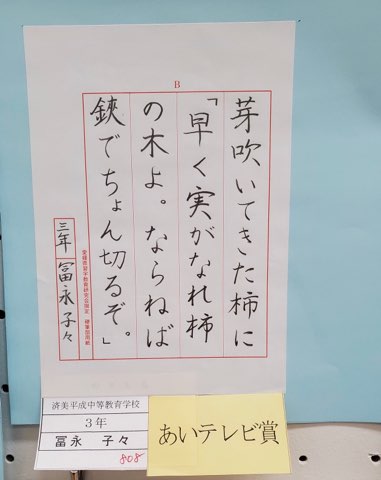 B
芽吹いてきた柿に
「早く実がなれ柿
の木よ。ならねば
鋏でちょん切るぞ。」
三年 冨永子々
愛媛県習字教育研究会指定 硬筆習用紙
済美平成中等教育学校
3年
冨永 子々
808
あいテレビ賞